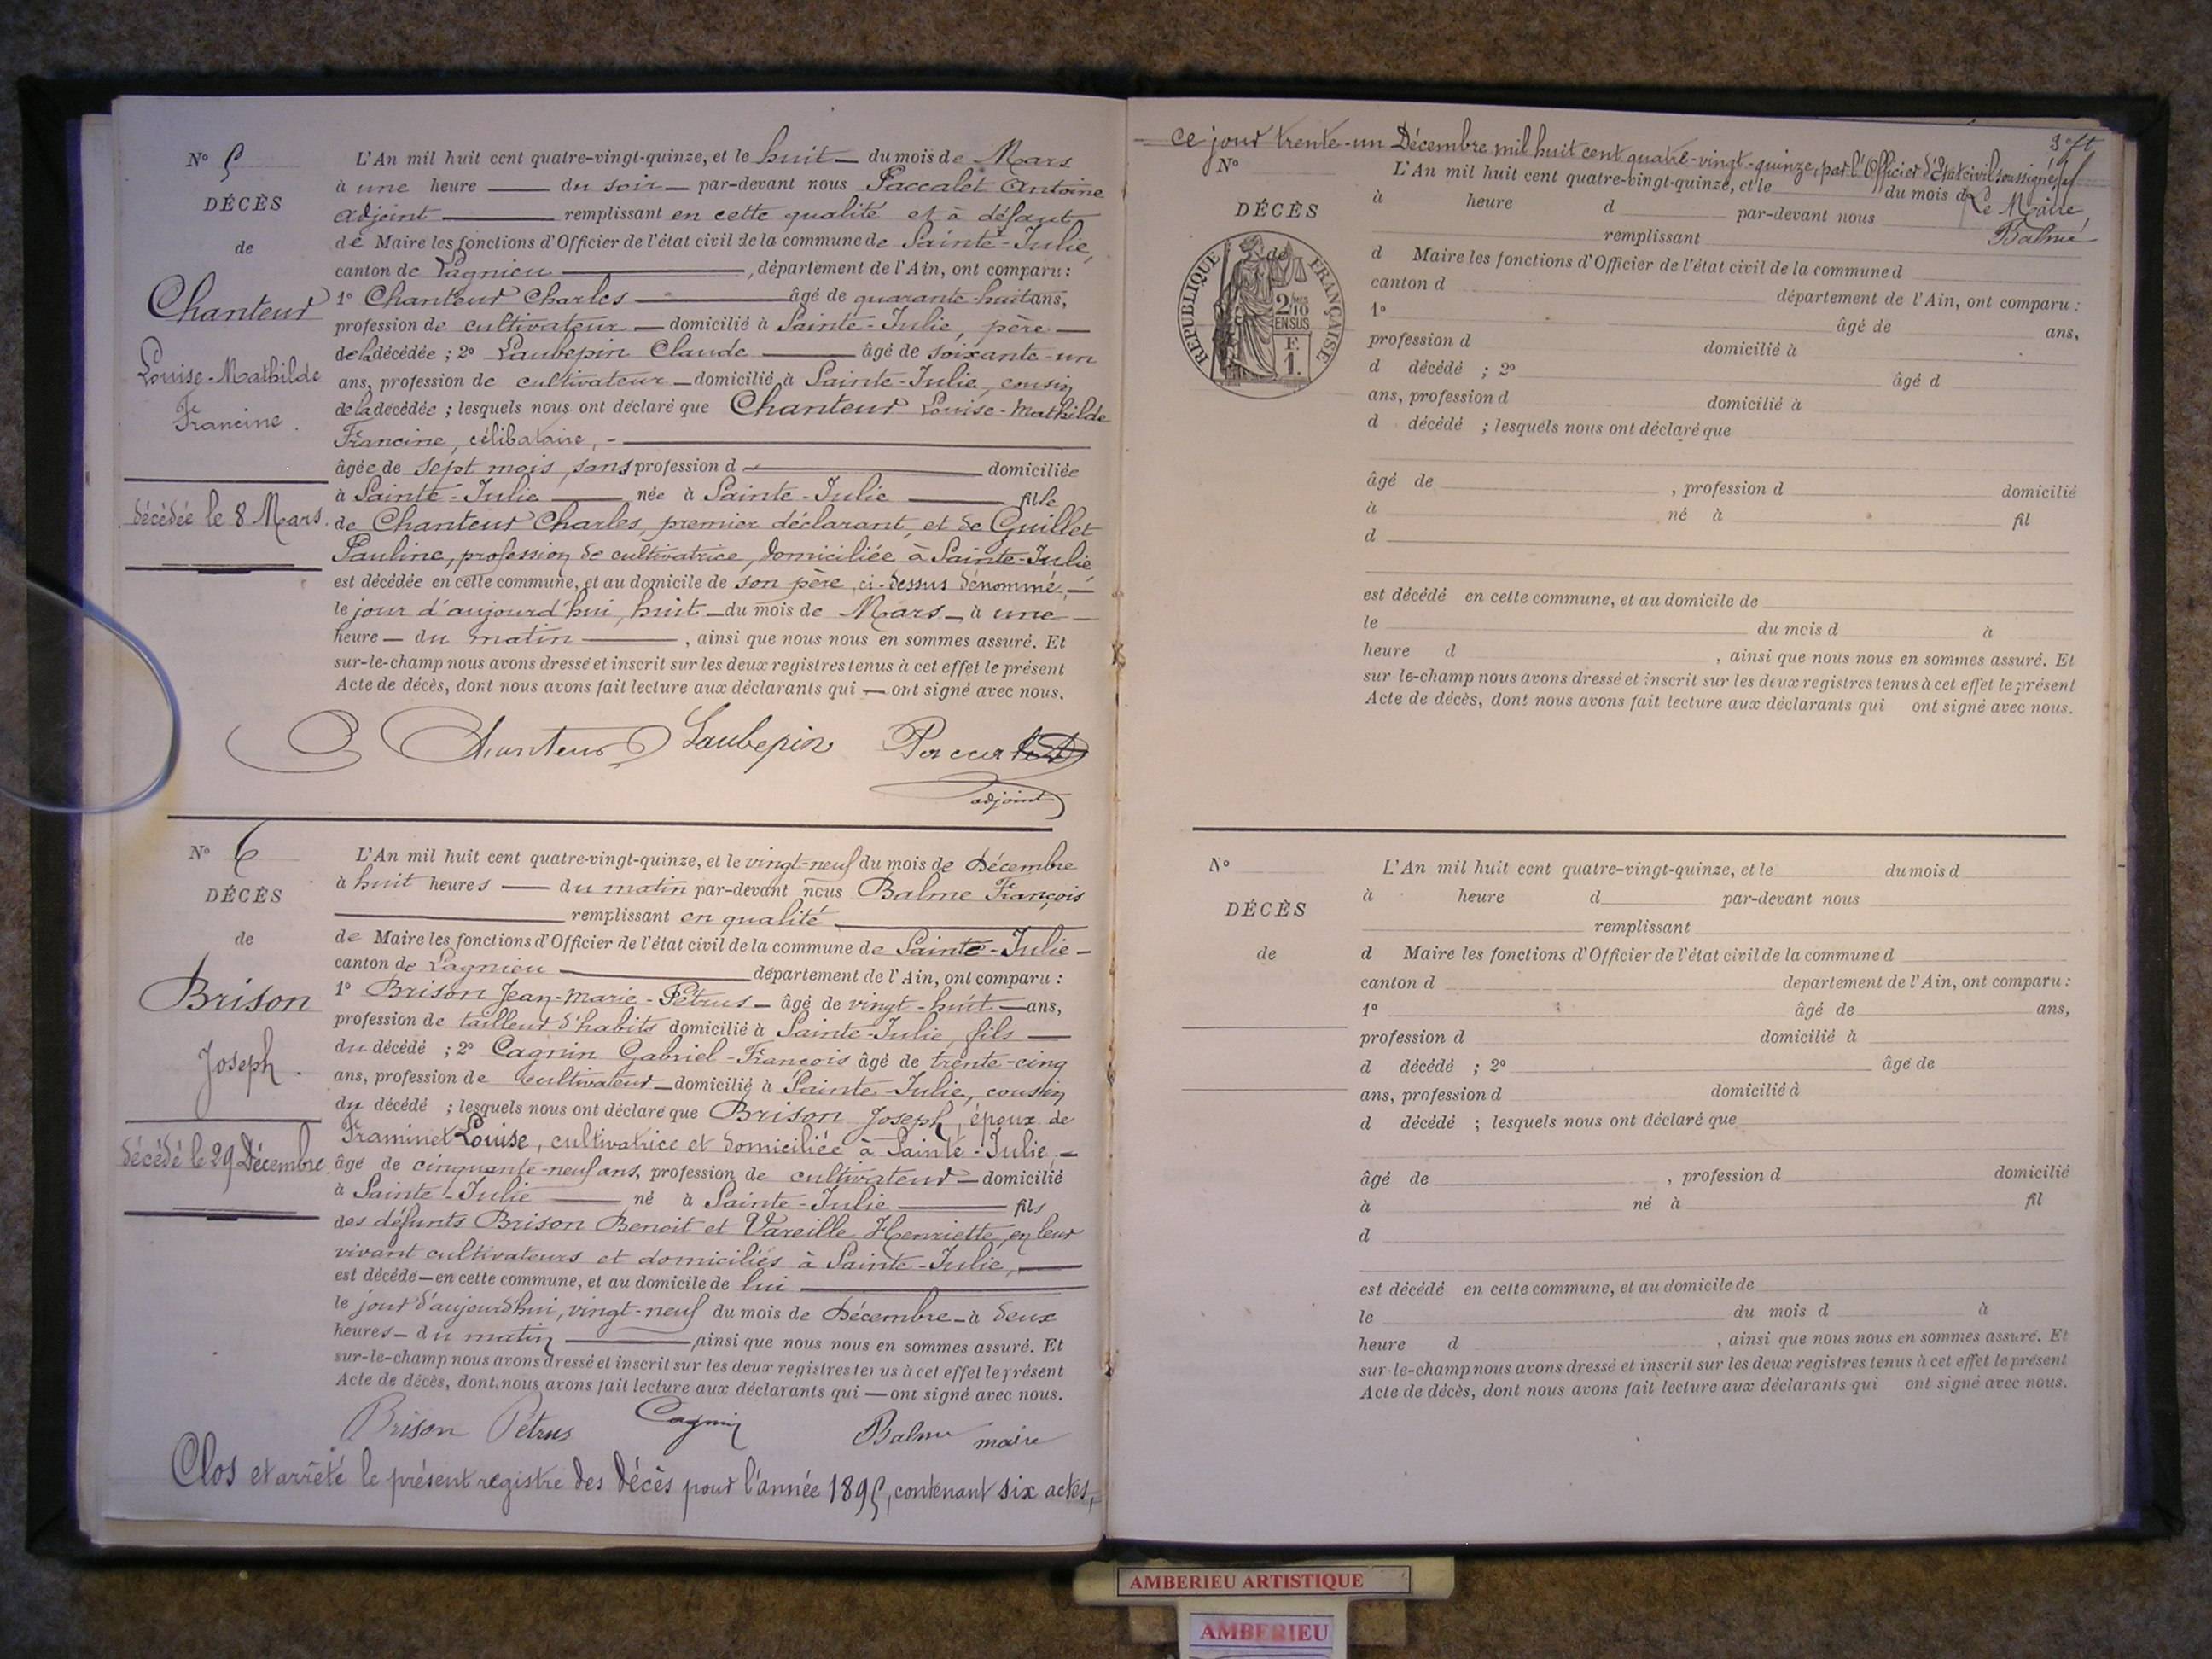 N° 5
DÉCÈS
de
Chanteur
Louise-Mathilde
Francine.
décédée le 8 Mars.
L'An mil huit cent quatre-vingt-quinze, et le huit du mois de Mars
à une heure du soir par-devant nous Paccalet Antoine
adjoint remplissant en cette qualité et à défaut
de Maire les fonctions d'Officier de l'état civil de la commune de Sainte-Julie,
canton de Lagnieu, département de l'Ain, ont comparu :
1° Chanteur Charles âgé de quarante-huit ans,
profession de cultivateur domicilié à Sainte-Julie, père
de la décédée ; 2° Laubepin Claude âgé de soixante-un
ans, profession de cultivateur domicilié à Sainte-Julie, cousin
de la décédée ; lesquels nous ont déclaré que Chanteur Louise-Mathilde
Francine, célibataire,
âgée de sept mois, sans profession d domiciliée
à Sainte-Julie née à Sainte-Julie fille
de Chanteur Charles, premier déclarant, et de Guillet
Pauline, profession de cultivatrice, domiciliée à Sainte-Julie
est décédée en cette commune, et au domicile de son père, ci-dessus dénommé,
le jour d'aujourd'hui, huit du mois de Mars à une
heure du matin, ainsi que nous nous en sommes assuré. Et
sur-le-champ nous avons dressé et inscrit sur les deux registres tenus à cet effet le présent
Acte de décès, dont nous avons fait lecture aux déclarants qui ont signé avec nous.
Chanteur Laubepin
adjoint
N° 6
DÉCÈS
de
Brison
Joseph.
décédé le 29 Décembre.
L'An mil huit cent quatre-vingt-quinze, et le vingt-neuf du mois de Décembre
à huit heures du matin par-devant nous Balme François
remplissant en qualité
de Maire les fonctions d'Officier de l'état civil de la commune de Sainte-Julie
canton de Lagnieu département de l'Ain, ont comparu :
1° Brison Jean-Marie-Pétrus âgé de vingt-huit ans,
profession de tailleur d'habits domicilié à Sainte-Julie, fils
du décédé ; 2° Cagnin Gabriel-François âgé de trente-cinq
ans, profession de cultivateur domicilié à Sainte-Julie, cousin
du décédé ; lesquels nous ont déclaré que Brison Joseph, époux de
Framinet Louise, cultivatrice et domiciliée à Sainte-Julie,
âgé de cinquante-neuf ans, profession de cultivateur domicilié
à Sainte-Julie né à Sainte-Julie fils
des défunts Brison Benoit et Vareille Henriette, en leur
vivant cultivateurs et domiciliés à Sainte-Julie,
est décédé en cette commune, et au domicile de lui
le jour d'aujourd'hui, vingt-neuf du mois de Décembre à deux
heures du matin, ainsi que nous nous en sommes assuré. Et
sur-le-champ nous avons dressé et inscrit sur les deux registres tenus à cet effet le présent
Acte de décès, dont nous avons fait lecture aux déclarants qui ont signé avec nous.
Brison Pétrus Cagnin Balme maire
Clos et arrêté le présent registre des décès pour l'année 1895, contenant six actes,
ce jour trente-un Décembre mil huit cent quatre-vingt-quinze, par l'Officier d'État civil soussigné
Le Maire,
Balme
N°
DÉCÈS
de
RÉPUBLIQUE FRANÇAISE
2/10
EN SUS
F.
1.
L'An mil huit cent quatre-vingt-quinze, et le du mois d
à heure d par-devant nous
remplissant
d Maire les fonctions d'Officier de l'état civil de la commune d
canton d département de l'Ain, ont comparu :
1° âgé de ans,
profession d domicilié à
d décédé ; 2° âgé d
ans, profession d domicilié à
d décédé ; lesquels nous ont déclaré que
âgé de , profession d domicilié
à né à fil
d
est décédé en cette commune, et au domicile de
le du mois d à
heure d , ainsi que nous nous en sommes assuré. Et
sur-le-champ nous avons dressé et inscrit sur les deux registres tenus à cet effet le présent
Acte de décès, dont nous avons fait lecture aux déclarants qui ont signé avec nous.
N°
DÉCÈS
de
L'An mil huit cent quatre-vingt-quinze, et le du mois d
à heure d par-devant nous
remplissant
d Maire les fonctions d'Officier de l'état civil de la commune d
canton d departement de l'Ain, ont comparu :
1° âgé de ans,
profession d domicilié à
d décédé ; 2° âgé de
ans, profession d domicilié à
d décédé ; lesquels nous ont déclaré que
âgé de , profession d domicilié
à né à fil
d
est décédé en cette commune, et au domicile de
le du mois d à
heure d , ainsi que nous nous en sommes assuré. Et
sur-le-champ nous avons dressé et inscrit sur les deux registres tenus à cet effet le présent
Acte de décès, dont nous avons fait lecture aux déclarants qui ont signé avec nous.
AMBERIEU ARTISTIQUE
AMBERIEU